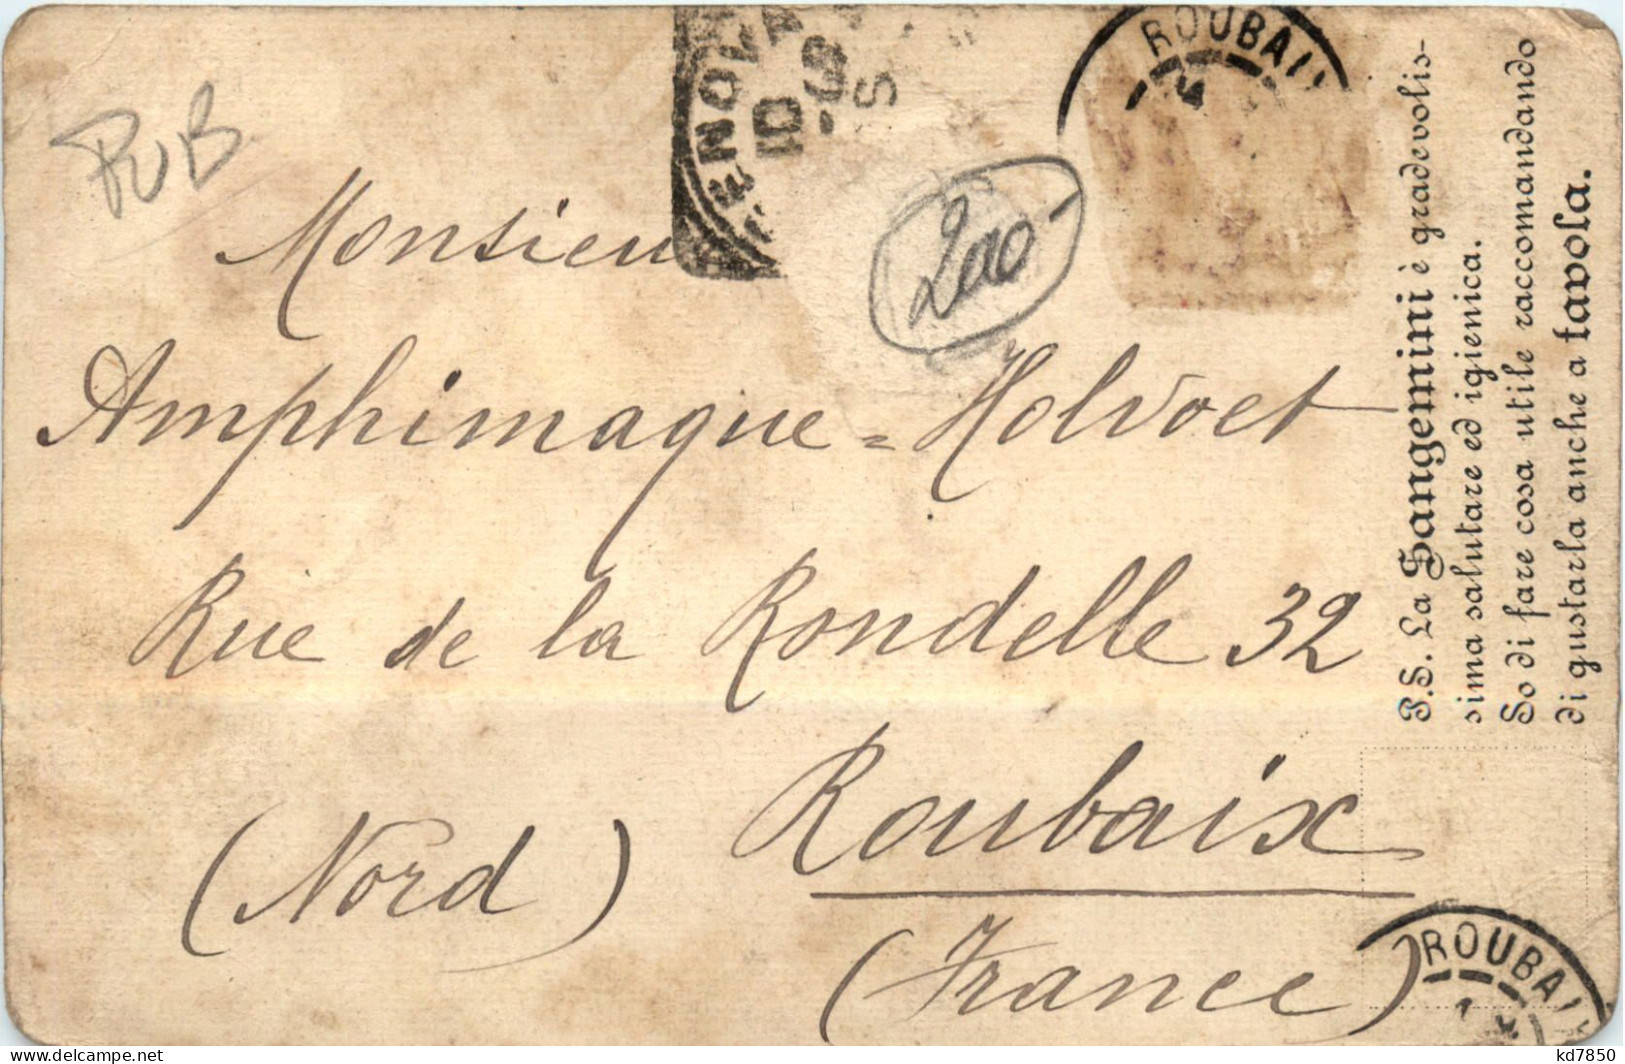 PUB
GENOVA
10
-9
S
ROUBAIX
200-
Monsieur
Amphimaque=Holvoet
Rue de la Rondelle 32
Roubaix
(Nord)
(France)
P.S. La Sangemini è gradevolis-
sima salutare ed igienica.
So di fare cosa utile raccomandando
di gustarla anche a tavola.
ROUBAIX
kd7850